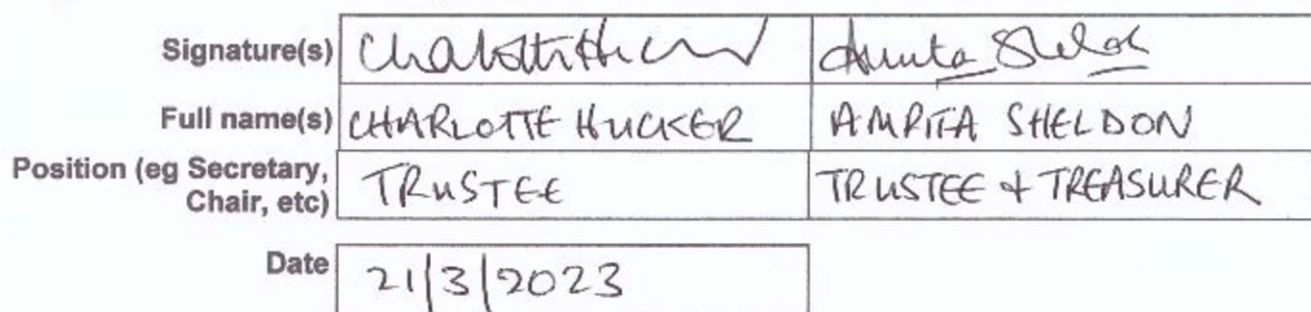 Signature(s)
Full name(s) CHARLOTTE HUCKER AMRITA SHELDON
Position (eg Secretary,
Chair, etc) TRUSTEE TRUSTEE + TREASURER
Date 21/3/2023